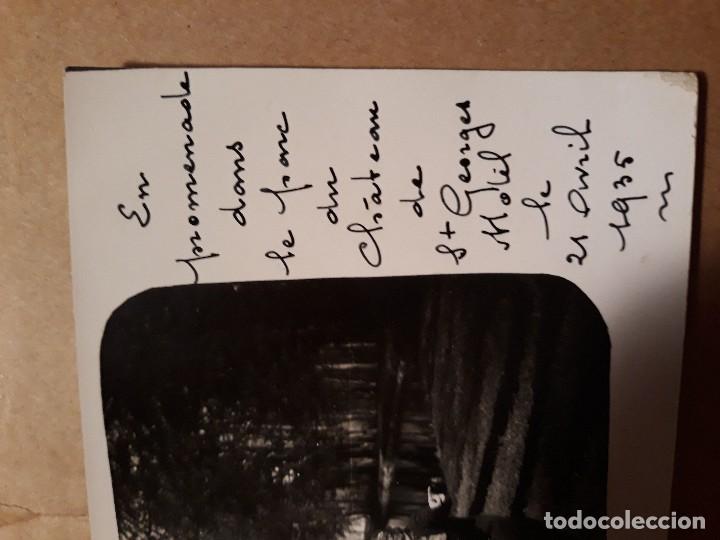 En
promenade
dans
le parc
du
Château
de
St Georges
Motel
le
21 Avril
1935
todocoleccion.net